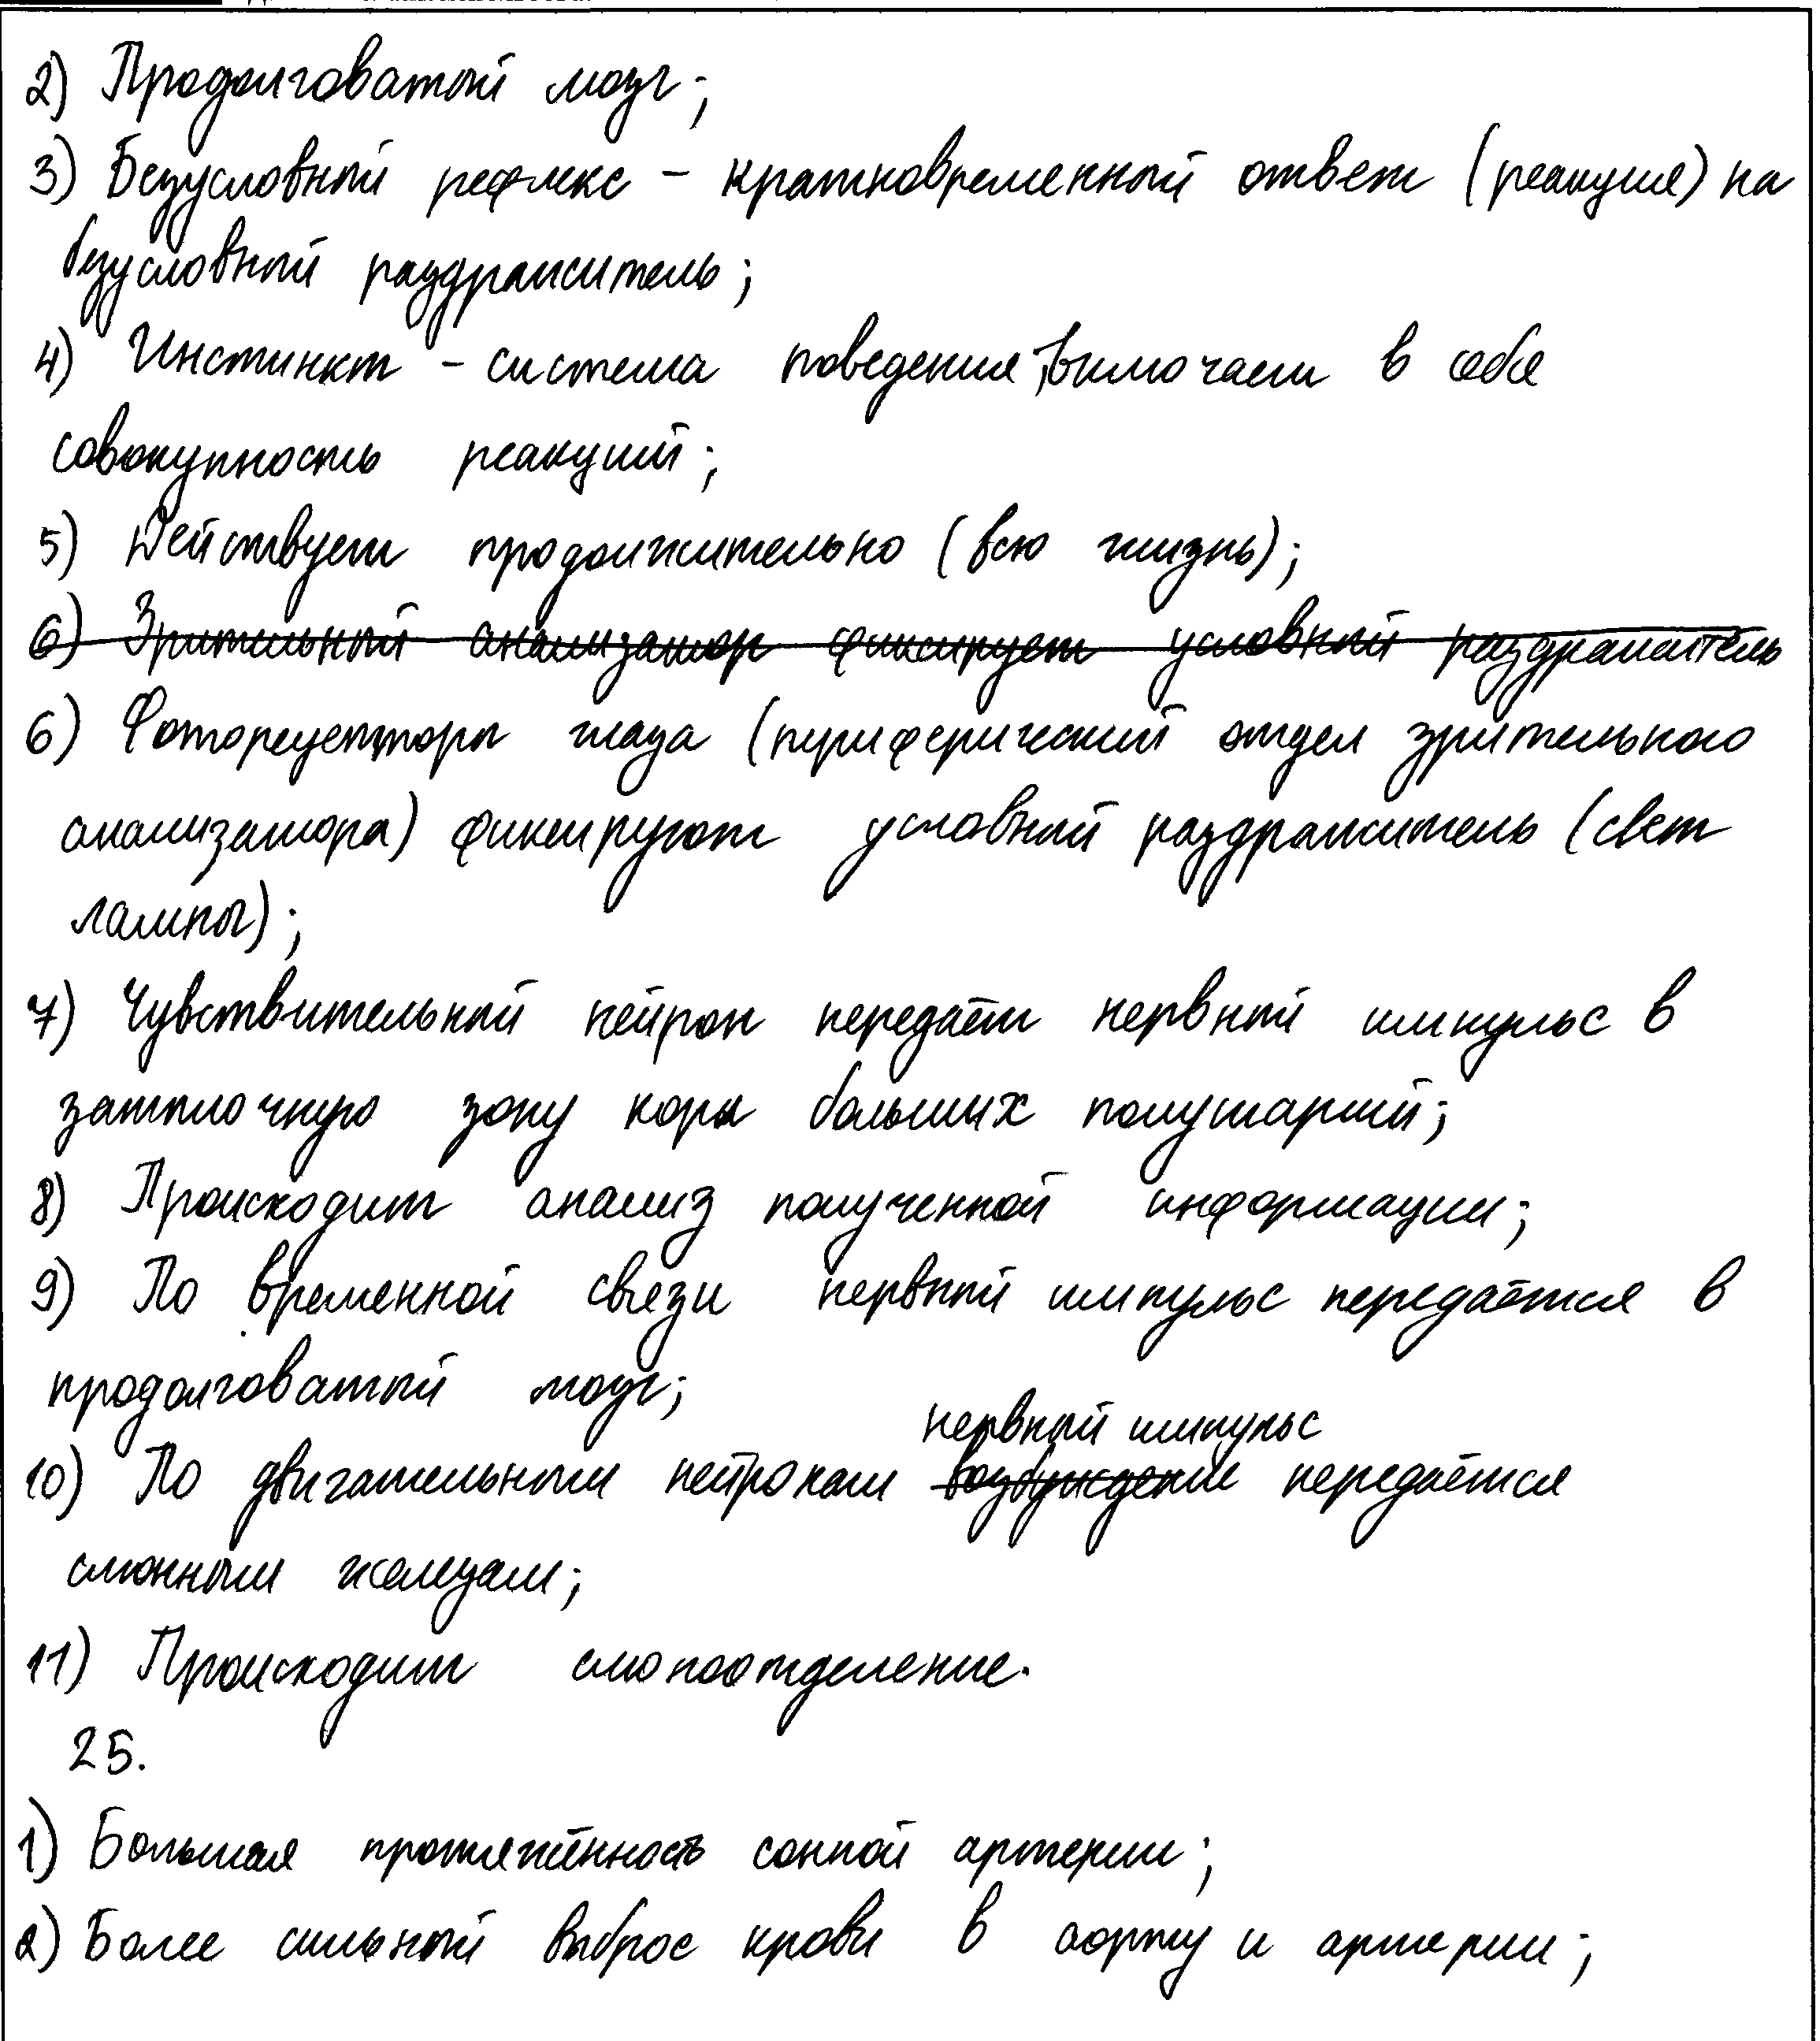 2) Продолговатый мозг;
3) Безусловный рефлекс – кратковременный ответ (реакция) на
безусловный раздражитель;
4) Инстинкт – система поведения, включает в себя
совокупность реакций;
5) Действует продолжительно (всю жизнь);
6) Зрительный анализатор фиксирует условный раздражитель
6) Фоторецепторы глаза (периферический отдел зрительного
анализатора) фиксируют условный раздражитель (свет
лампы);
7) Чувствительный нейрон передаёт нервный импульс в
затылочную зону коры больших полушарий;
8) Происходит анализ полученной информации;
9) По временной связи нервный импульс передаётся в
продолговатый мозг;
нервный импульс
10) По двигательным нейронам возбуждение передаётся
слюнным железам;
11) Происходит слюноотделение.
25.
1) Большая протяжённость сонной артерии;
2) Более сильный выброс крови в аорту и артерии;